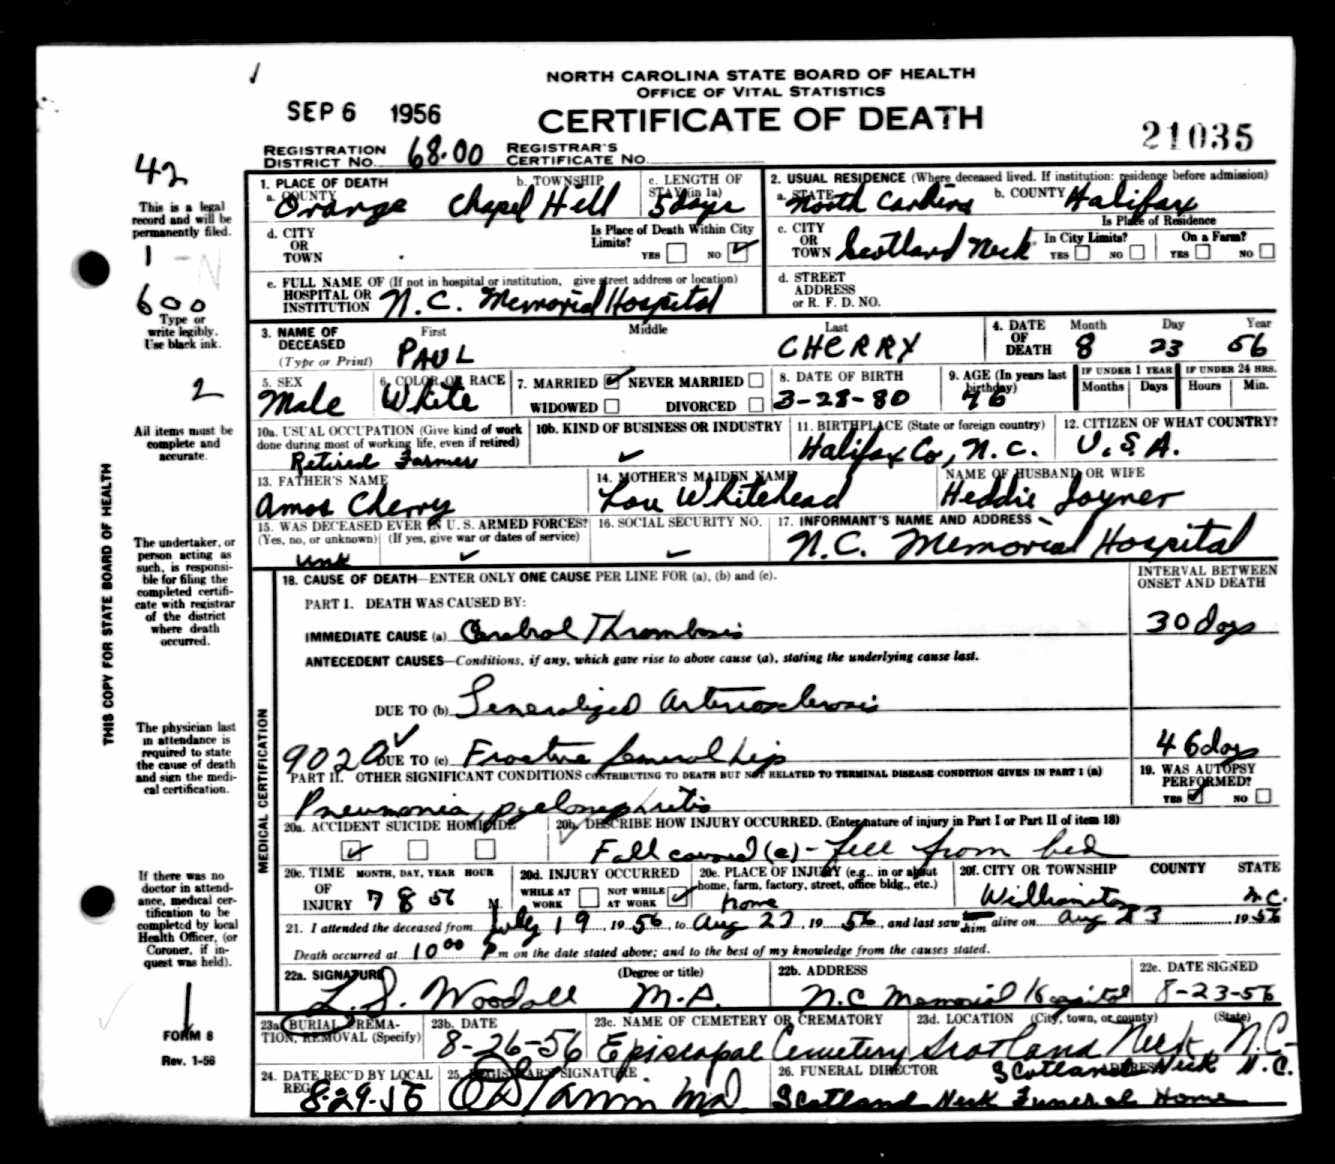 NORTH CAROLINA STATE BOARD OF HEALTH
OFFICE OF VITAL STATISTICS
CERTIFICATE OF DEATH
SEP 6 1956
21035
REGISTRATION DISTRICT NO. 68.00 REGISTRAR'S CERTIFICATE NO.
42
This is a legal record and will be permanently filed.
1 - N
600
Type or write legibly. Use black ink.
2
All items must be complete and accurate.
The undertaker, or person acting as such, is responsible for filing the completed certificate with registrar of the district where death occurred.
The physician last in attendance is required to state the cause of death and sign the medical certification.
If there was no doctor in attendance, medical certification to be completed by local Health Officer, (or Coroner, if inquest was held).
1
FORM 8
Rev. 1-56
THIS COPY FOR STATE BOARD OF HEALTH
1. PLACE OF DEATH
a. COUNTY Orange b. TOWNSHIP Chapel Hill c. LENGTH OF STAY (in 1a) 5 days
d. CITY OR TOWN Is Place of Death Within City Limits? YES NO ✓
e. FULL NAME OF (If not in hospital or institution, give street address or location) HOSPITAL OR INSTITUTION N.C. Memorial Hospital
2. USUAL RESIDENCE (Where deceased lived. If institution: residence before admission)
a. STATE North Carolina b. COUNTY Halifax
c. CITY OR TOWN Scotland Neck Is Place of Residence In City Limits? YES NO On a Farm? YES NO
d. STREET ADDRESS or R. F. D. NO.
3. NAME OF DECEASED (Type or Print) First PAUL Middle Last CHERRY
4. DATE OF DEATH Month 8 Day 23 Year 56
5. SEX Male 6. COLOR OR RACE White 7. MARRIED ✓ NEVER MARRIED WIDOWED DIVORCED
8. DATE OF BIRTH 3-28-80 9. AGE (In years last birthday) 76 IF UNDER 1 YEAR Months Days IF UNDER 24 HRS. Hours Min.
10a. USUAL OCCUPATION (Give kind of work done during most of working life, even if retired) Retired Farmer
10b. KIND OF BUSINESS OR INDUSTRY ✓
11. BIRTHPLACE (State or foreign country) Halifax Co, N.C.
12. CITIZEN OF WHAT COUNTRY? U.S.A.
13. FATHER'S NAME Amos Cherry
14. MOTHER'S MAIDEN NAME Lou Whitehead
NAME OF HUSBAND OR WIFE Heddie Joyner
15. WAS DECEASED EVER IN U. S. ARMED FORCES? (Yes, no, or unknown) (If yes, give war or dates of service) Unk ✓
16. SOCIAL SECURITY NO. ✓
17. INFORMANT'S NAME AND ADDRESS N.C. Memorial Hospital
MEDICAL CERTIFICATION
18. CAUSE OF DEATH—ENTER ONLY ONE CAUSE PER LINE FOR (a), (b) and (c).
INTERVAL BETWEEN ONSET AND DEATH
PART I. DEATH WAS CAUSED BY:
IMMEDIATE CAUSE (a) Cerebral Thrombosis 30 days
ANTECEDENT CAUSES—Conditions, if any, which gave rise to above cause (a), stating the underlying cause last.
DUE TO (b) Generalized Arteriosclerosis
9020 ✓ DUE TO (c) Fracture femoral hip 46 days
PART II. OTHER SIGNIFICANT CONDITIONS CONTRIBUTING TO DEATH BUT NOT RELATED TO TERMINAL DISEASE CONDITION GIVEN IN PART I (a)
Pneumonia, pyelonephritis
19. WAS AUTOPSY PERFORMED? YES ✓ NO
20a. ACCIDENT SUICIDE HOMICIDE ✓
20b. DESCRIBE HOW INJURY OCCURRED. (Enter nature of injury in Part I or Part II of item 18)
Fall caused (c) - fell from bed
20c. TIME OF INJURY MONTH, DAY, YEAR HOUR 7 8 56 M.
20d. INJURY OCCURRED WHILE AT WORK NOT WHILE AT WORK ✓
20e. PLACE OF INJURY (e.g., in or about home, farm, factory, street, office bldg., etc.) home
20f. CITY OR TOWNSHIP COUNTY STATE Williamston N.C.
21. I attended the deceased from July 19, 1956, to Aug 23, 1956, and last saw him alive on Aug 23 1956
Death occurred at 10 00 P m on the date stated above; and to the best of my knowledge from the causes stated.
22a. SIGNATURE (Degree or title) L.S. Woodall M.D.
22b. ADDRESS N.C Memorial Hospital
22c. DATE SIGNED 8-23-56
23a. BURIAL, CREMATION, REMOVAL (Specify) 23b. DATE 8-26-56
23c. NAME OF CEMETERY OR CREMATORY Episcopal Cemetery
23d. LOCATION (City, town, or county) (State) Scotland Neck, N.C.
24. DATE REC'D BY LOCAL REG. 8-29-56
25. REGISTRAR'S SIGNATURE
26. FUNERAL DIRECTOR ADDRESS Scotland Neck N.C.
Scotland Neck Funeral Home